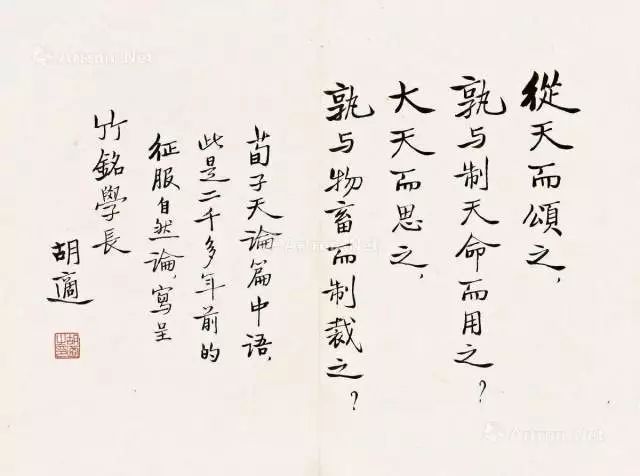 從天而頌之，
孰与制天命而用之？
大天而思之，
孰与物畜而制裁之？
荀子天論篇中語，
此是二千多年前的
征服自然論，寫呈
竹銘學長
胡適